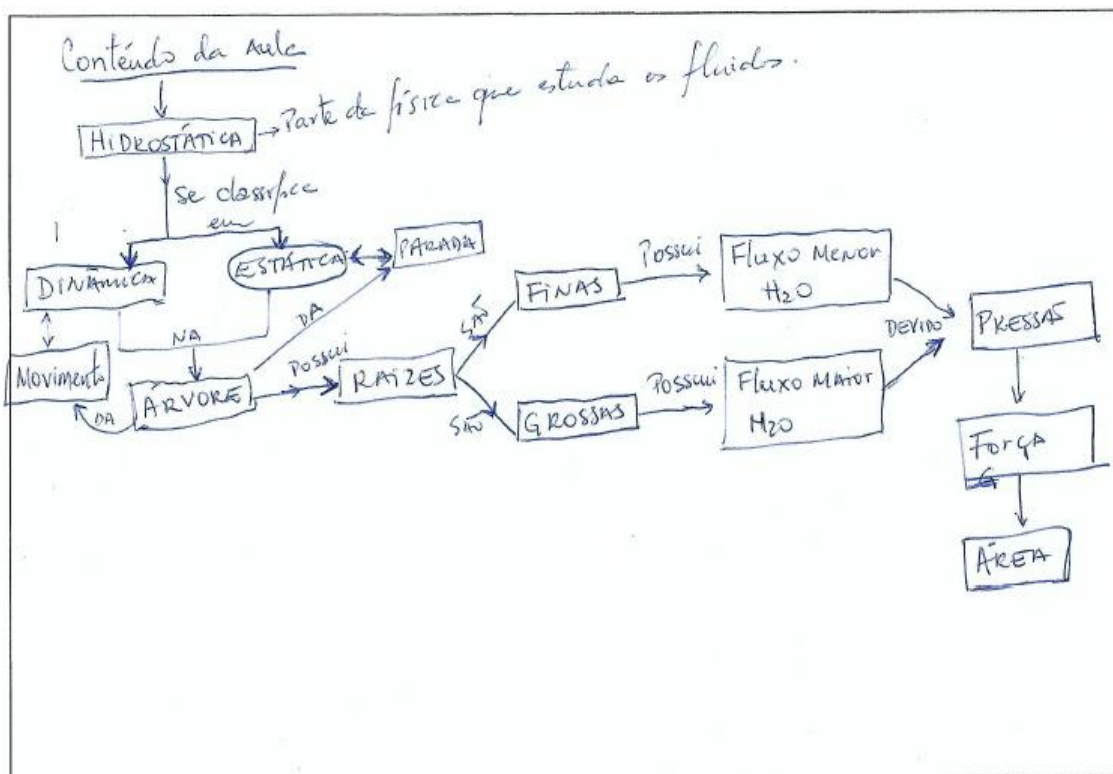 Conteúdo da Aula
HIDROSTÁTICA → Parte da física que estuda os fluidos.
Se classifica
em
DINÂMICA
ESTÁTICA
PARADA
Movimento
NA
DA
DA
ÁRVORE
POSSUI
RAÍZES
SÃO
FINAS
POSSUI
Fluxo Menor
H2O
SÃO
GROSSAS
POSSUI
Fluxo Maior
H2O
DEVIDO
PRESSÃO
Força
ÁREA